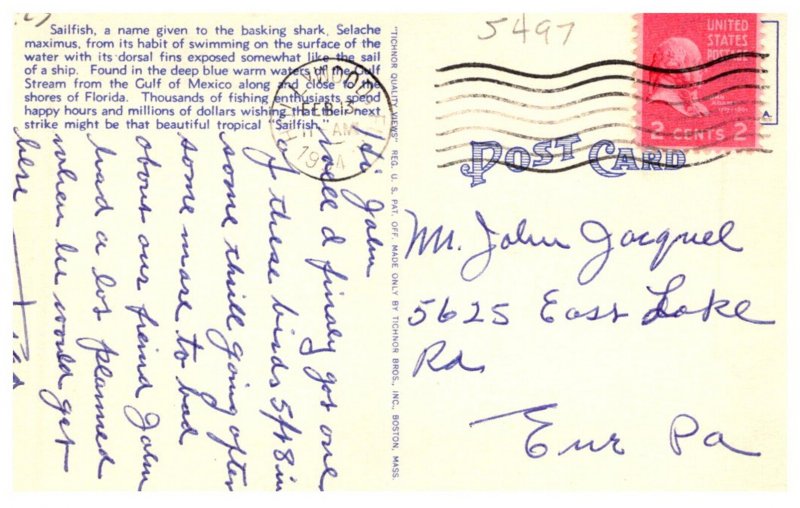 Sailfish, a name given to the basking shark, Selache
maximus, from its habit of swimming on the surface of the
water with its dorsal fins exposed somewhat like the sail
of a ship. Found in the deep blue warm waters of the Gulf
Stream from the Gulf of Mexico along and close to the
shores of Florida. Thousands of fishing enthusiasts spend
happy hours and millions of dollars wishing that their next
strike might be that beautiful tropical "Sailfish."
Hi John
well I finaly got one
of these birds 5 ft 8 in
some thrill going after
some more to bad
about our freind John
had a lot planned
when he would get
here
"TICHNOR QUALITY VIEWS" REG. U. S. PAT. OFF. MADE ONLY BY TICHNOR BROS., INC., BOSTON, MASS.
5497
UNITED
STATES
POSTAGE
2 CENTS 2
POST CARD
Mr. John Jacquel
5625 East Lake
Rd
Erie Pa